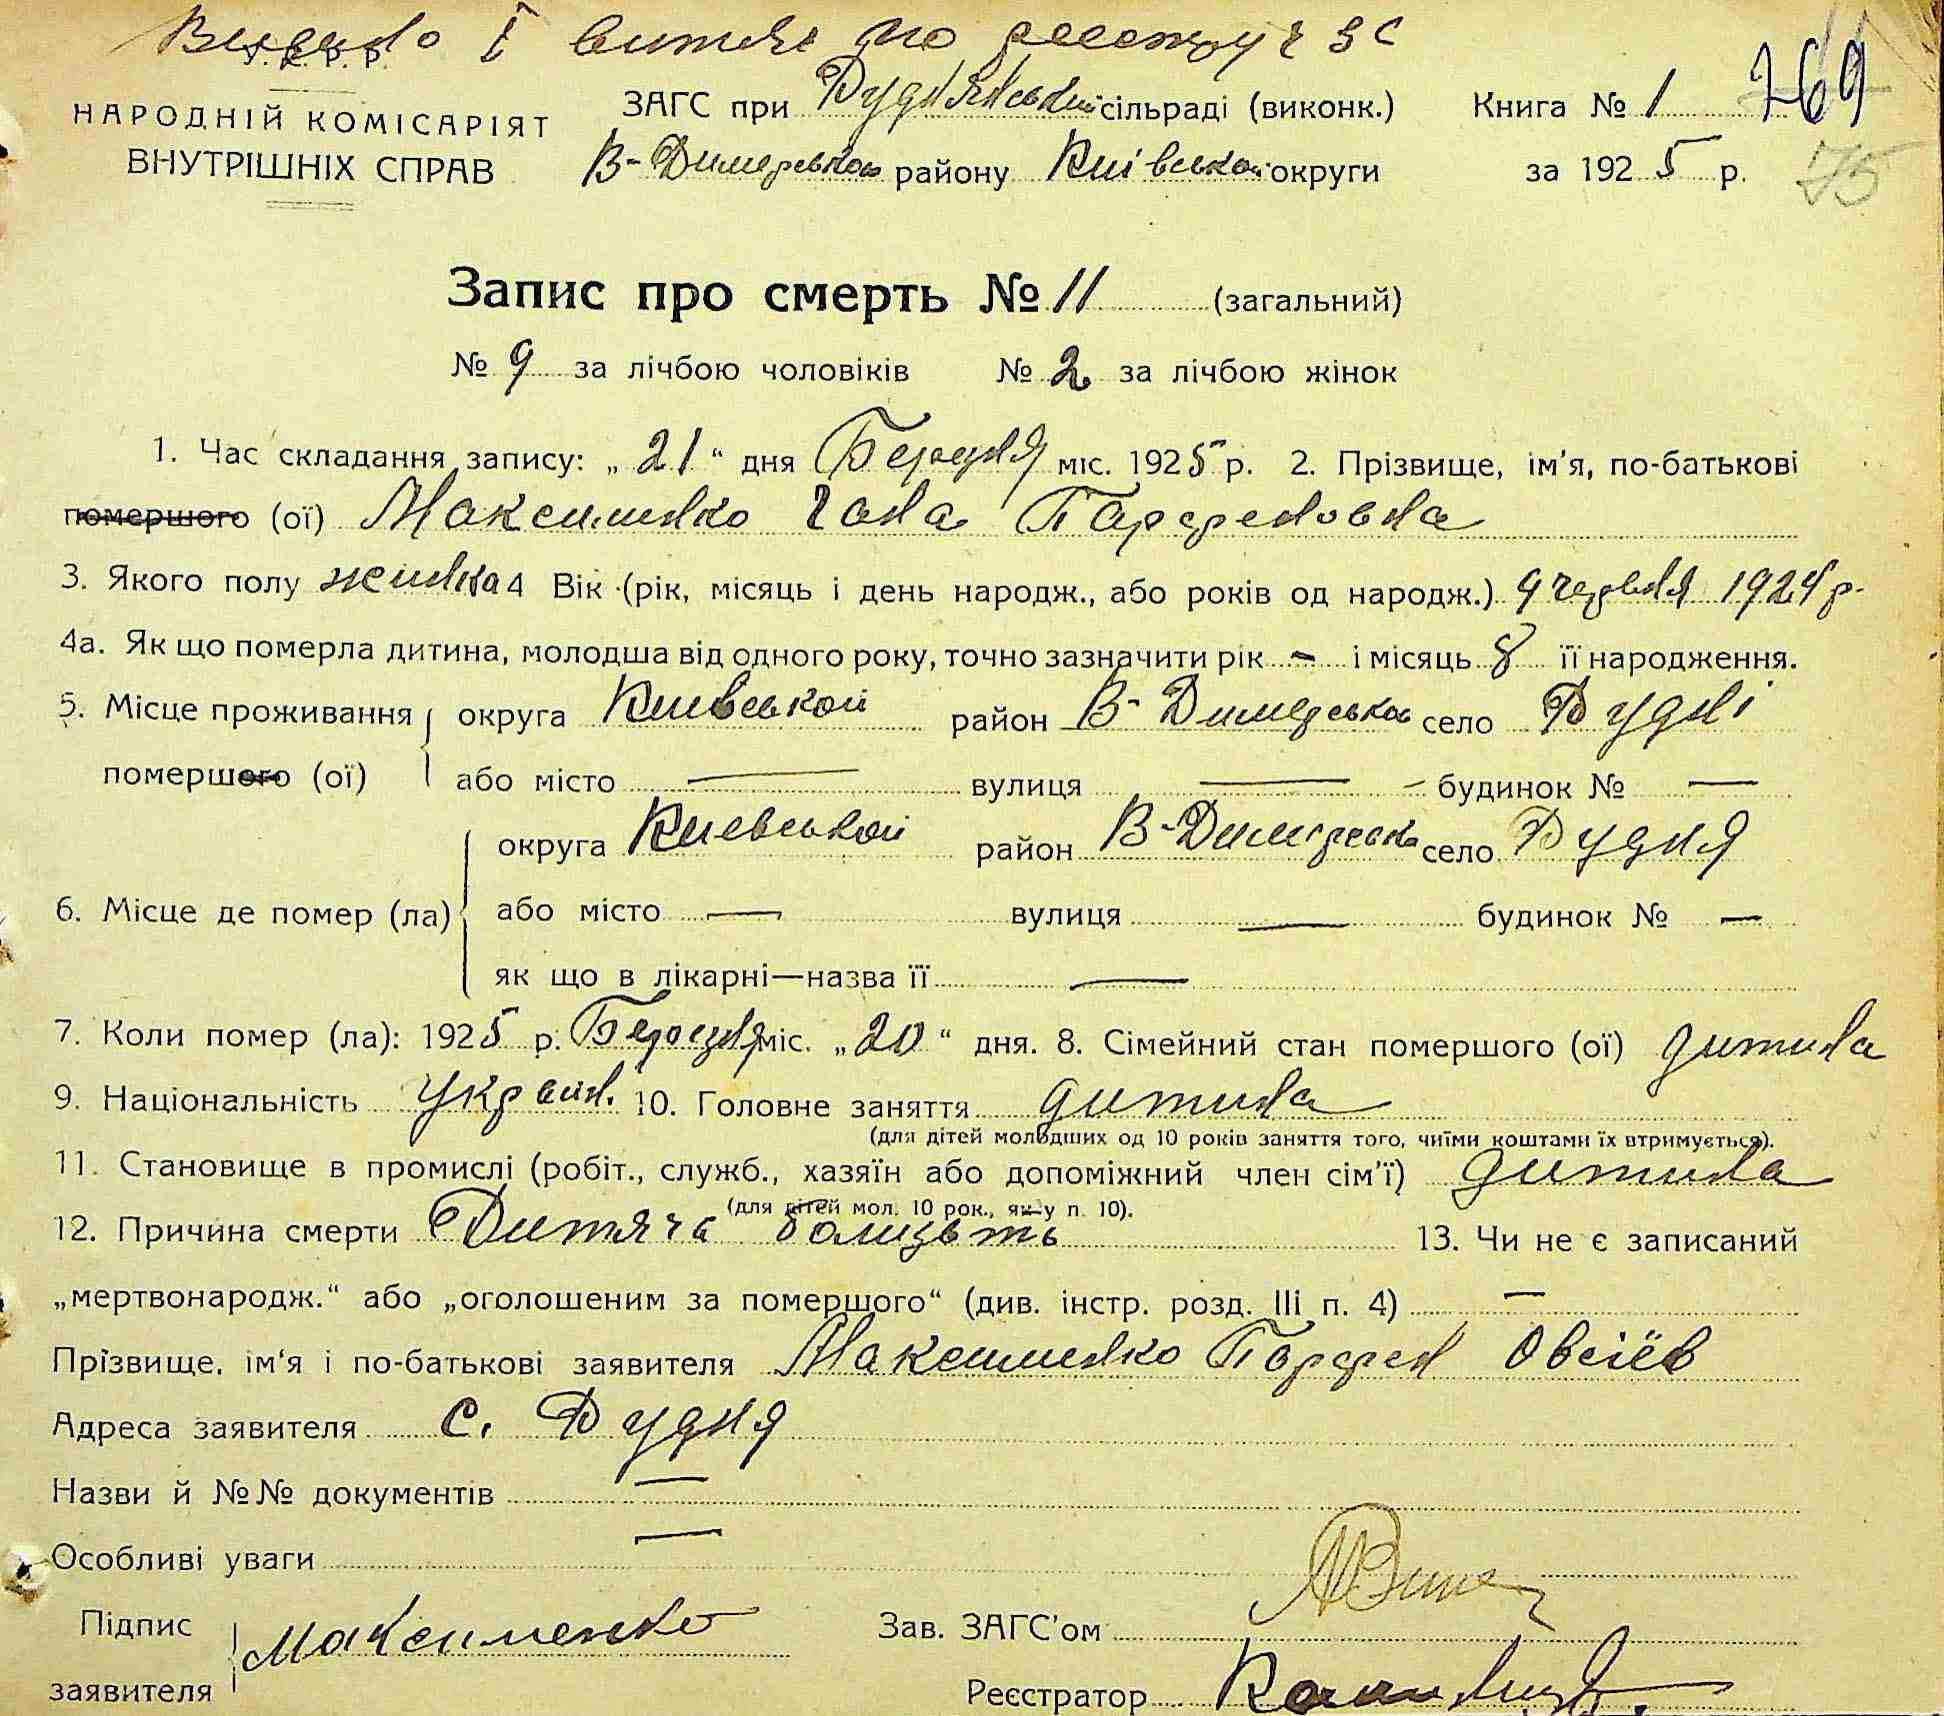 Видано 1 витяг по реестру ч 36
У. С. Р. Р.
НАРОДНІЙ КОМІСАРІЯТ
ВНУТРІШНІХ СПРАВ
ЗАГС при Руднянській сільраді (виконк.)
В-Димерського району Київської округи
Книга № 1
769
за 1925 р.
75
Запис про смерть № 11 (загальний)
№ 9 за лічбою чоловіків № 2 за лічбою жінок
1. Час складання запису: „21“ дня Березня міс. 1925 р. 2. Прізвище, ім'я, по-батькові
помершого (ої) Максименко Гана Парфеновна
3. Якого полу жинка 4 Вік (рік, місяць і день народж., або років од народж.) 9 червня 1924 р.
4а. Як що померла дитина, молодша від одного року, точно зазначити рік - і місяць 8 її народження.
5. Місце проживання округа Киевськой район В-Димерськой село Рудні
помершого (ої) або місто — вулиця — будинок № —
округа Киевськой район В-Димерськ село Рудня
6. Місце де помер (ла) або місто — вулиця — будинок № —
як що в лікарні—назва її —
7. Коли помер (ла): 1925 р. Березня міс. „20“ дня. 8. Сімейний стан помершого (ої) дитина
9. Національність Украін. 10. Головне заняття дитина
(для дітей молодших од 10 років заняття того, чиїми коштами їх втримується).
11. Становище в промислі (робіт., служб., хазяїн або допоміжний член сім'ї) дитина
(для дітей мол. 10 рок., як у п. 10).
12. Причина смерти Дитяча 13. Чи не є записаний
„мертвонародж.“ або „оголошеним за помершого“ (див. інстр. розд. III п. 4) —
Прізвище, ім'я і по-батькові заявителя Максименко Парфен Овсіёв
Адреса заявителя с. Рудня
Назви й №№ документів —
Особливі уваги —
Підпис
заявителя Максименко
Зав. ЗАГС'ом
Реєстратор